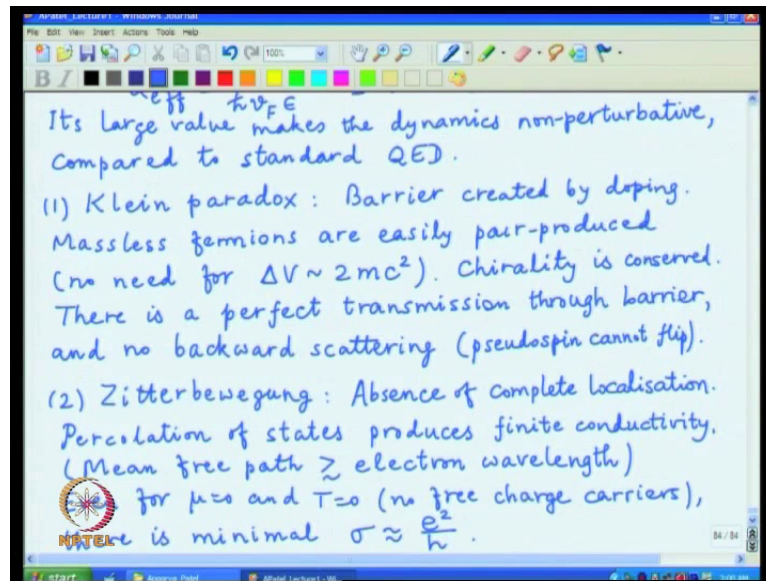 APatel_Lecture1 - Windows Journal
File Edit View Insert Actions Tools Help
100%
B I
α_eff = ħv_F ε
Its large value makes the dynamics non-perturbative,
compared to standard QED.
(1) Klein paradox : Barrier created by doping.
Massless fermions are easily pair-produced
(no need for ΔV ~ 2mc²). Chirality is conserved.
There is a perfect transmission through barrier,
and no backward scattering (pseudospin cannot flip).
(2) Zitterbewegung : Absence of complete localisation.
Percolation of states produces finite conductivity.
(Mean free path ≳ electron wavelength)
for μ=0 and T=0 (no free charge carriers),
there is minimal σ ≈ e²/h .
NPTEL
84 / 84
start
Apoorva Patel
APatel_Lecture1 - Wi...
2:00 AM